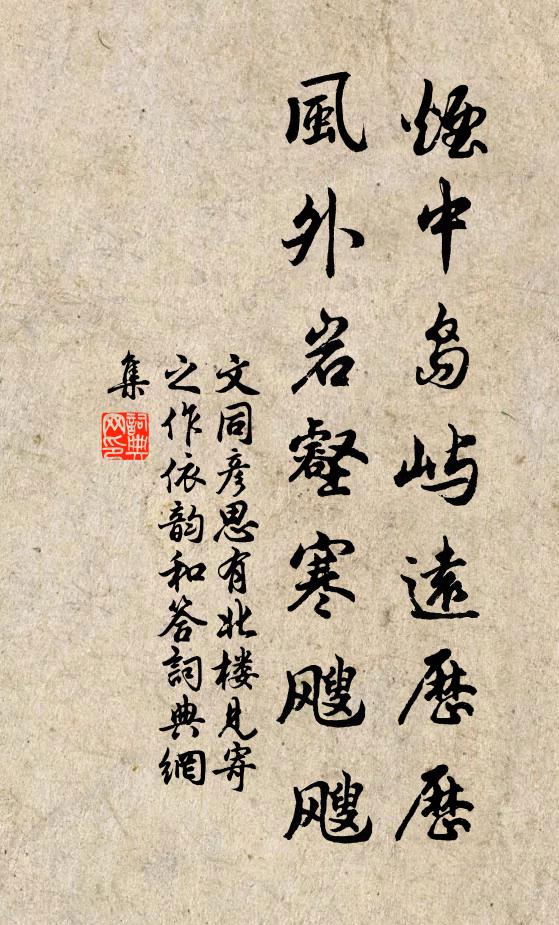 煙中島嶼遠歷歷
風外岩壑寒颼颼
文同彥思有北楼見寄
之作依韵和答詞典網
集
詞典
网印